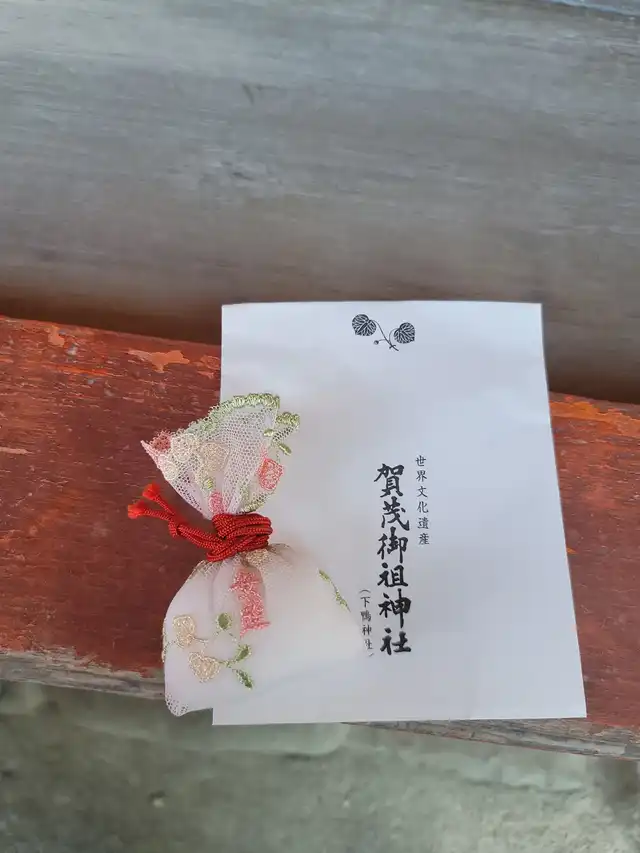 世界文化遺産
賀茂御祖神社
(下鴨神社)